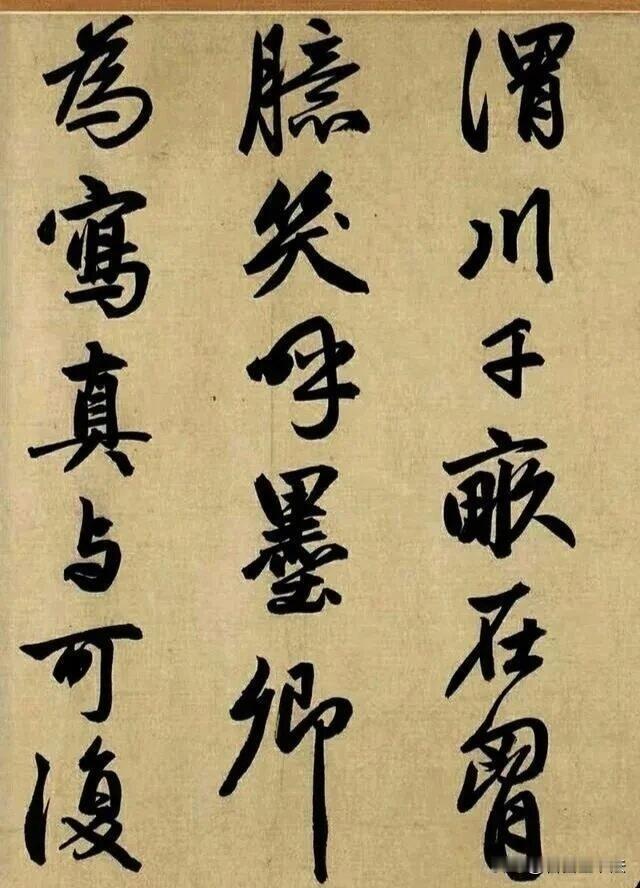 渭川千畝在胷
臆笑呼墨卿
為寫真与可復